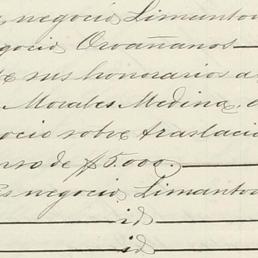 negocio Limantou
gocio Orvañanos
sus honorarios a
Morales Medina,
ocio sobre traslacio
de $5.000.
negocio Limantou
id
id